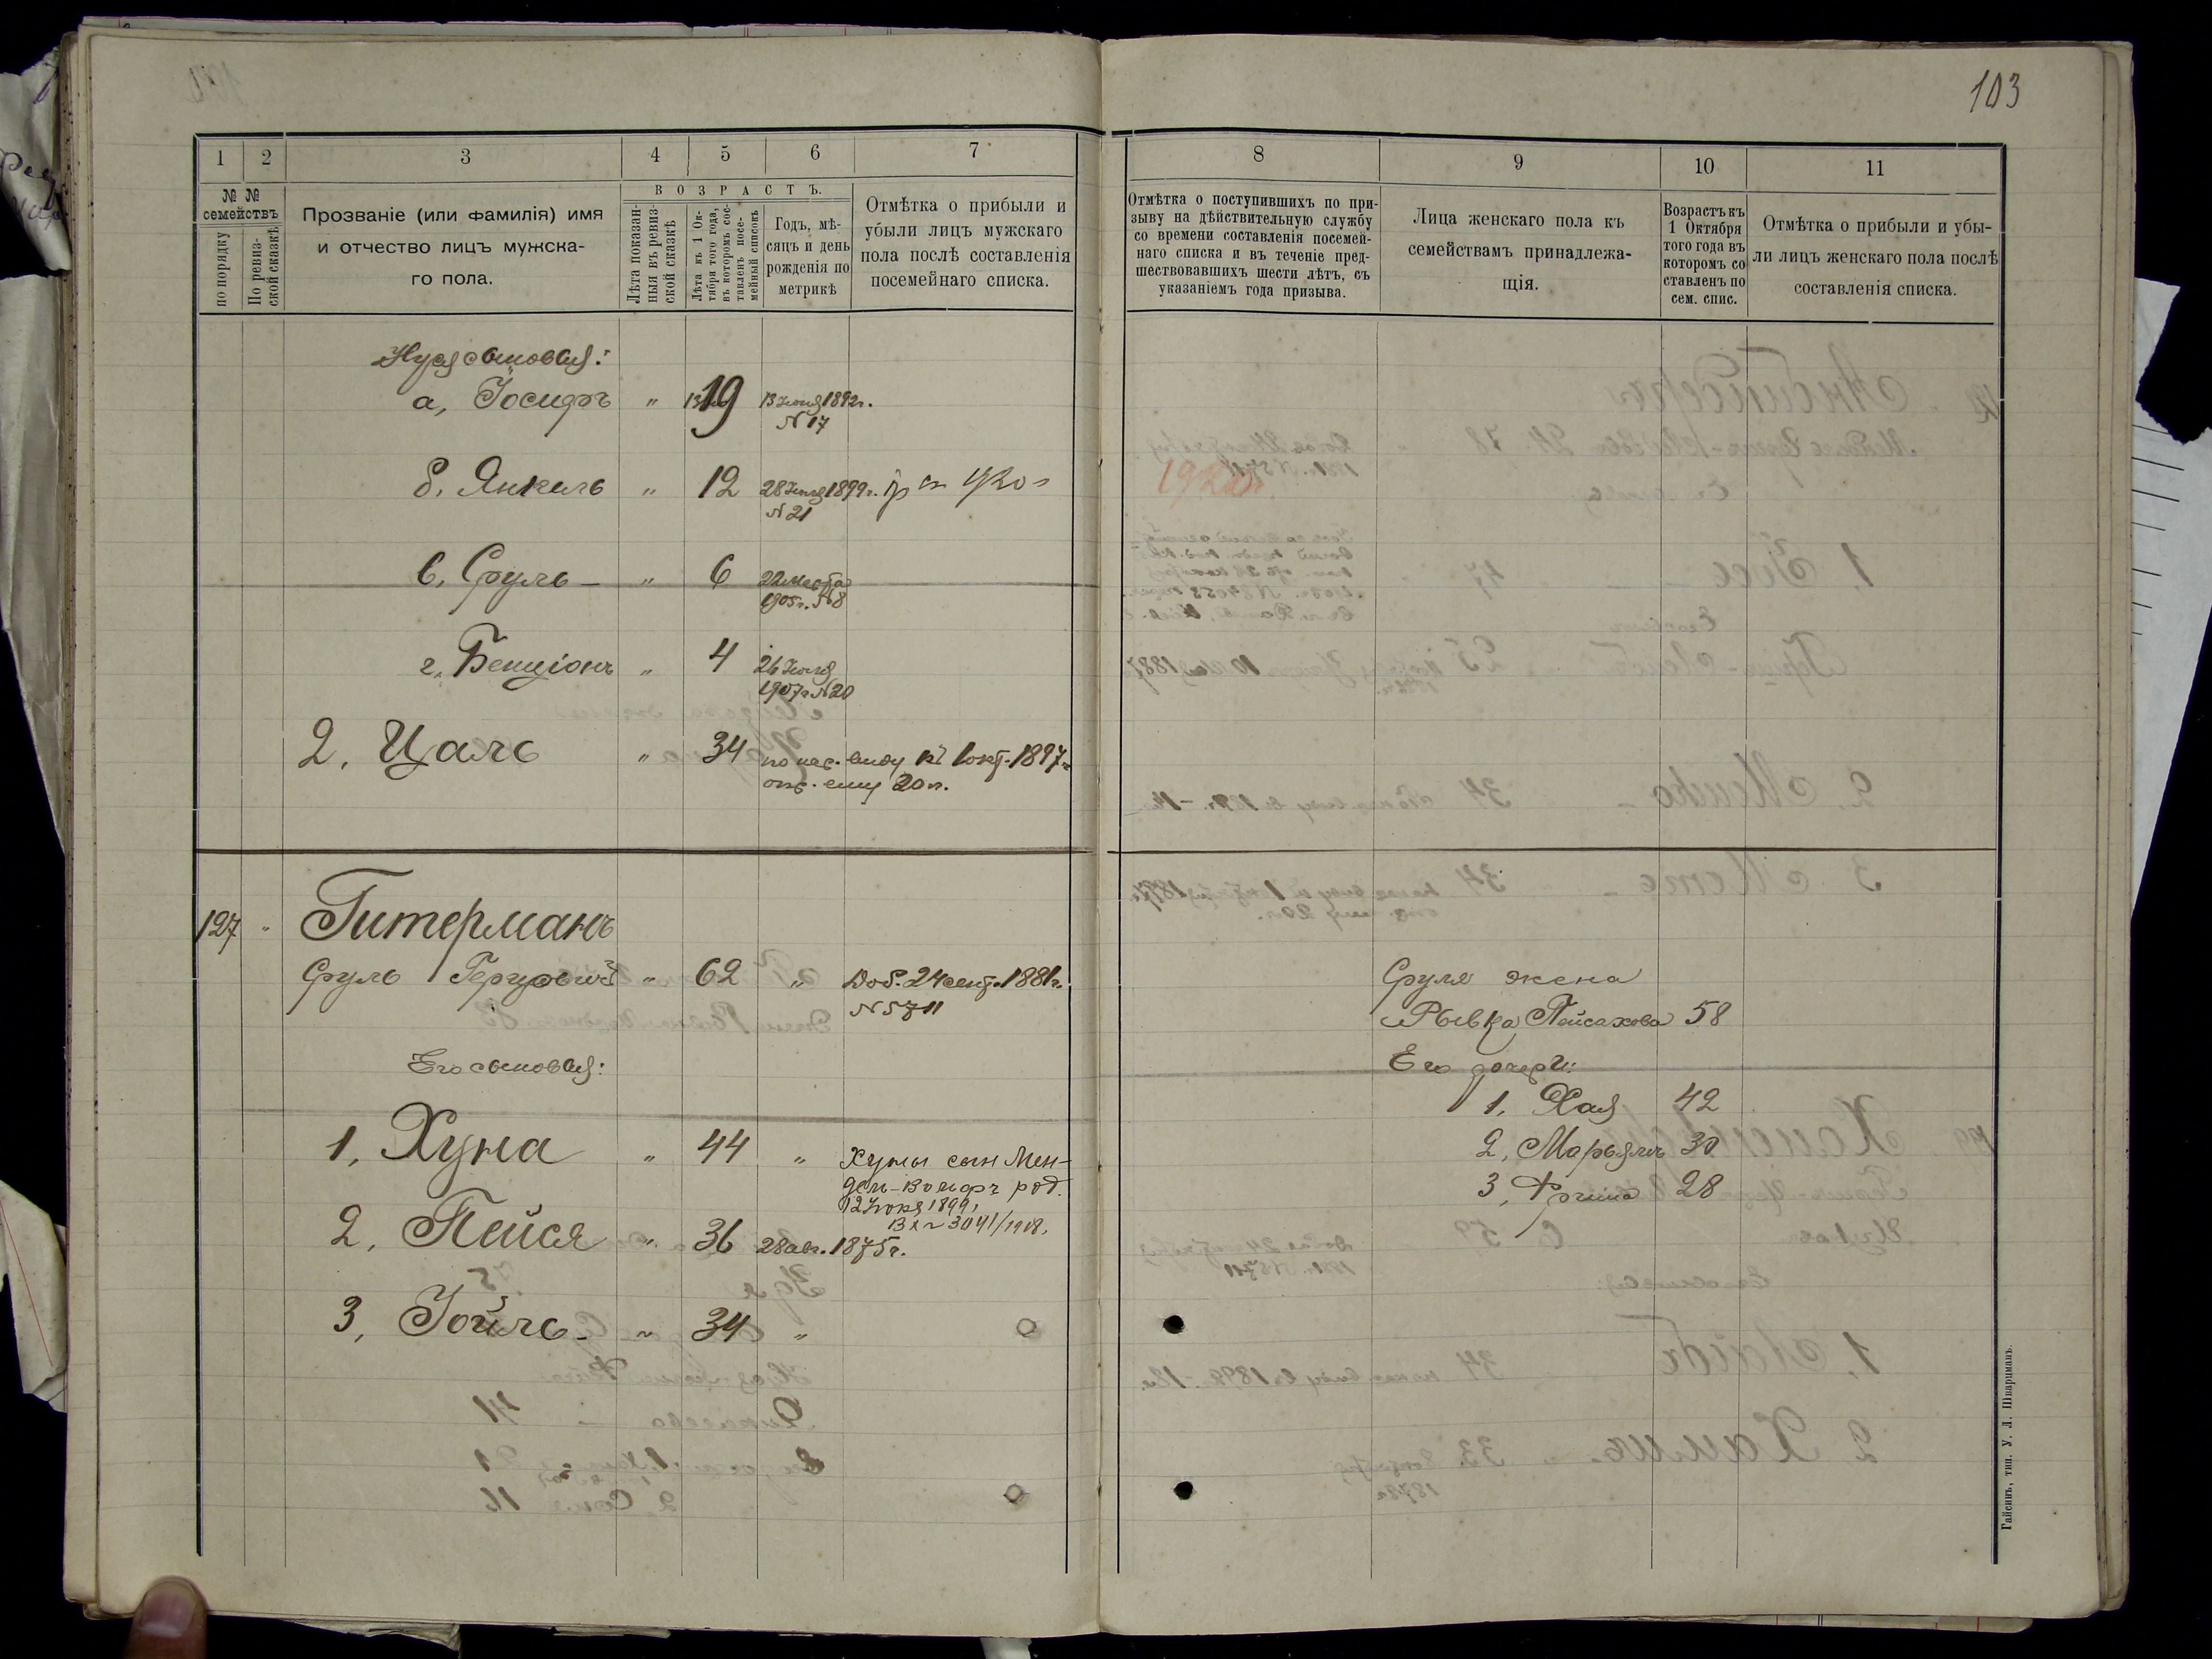 103
1
2
3
4
5
6
7
8
9
10
11
№ №
семействъ
по порядку
По ревиз-
ской сказкѣ
Прозваніе (или фамилія) имя
и отчество лицъ мужска-
го пола.
ВОЗРАСТЪ.
Лѣта показан-
ныя въ ревиз-
ской сказкѣ
Лѣта къ 1 Ок-
тября того года,
въ которомъ сос-
тавленъ посе-
мейный списокъ
Годъ, мѣ-
сяцъ и день
рожденія по
метрикѣ
Отмѣтка о прибыли и
убыли лицъ мужскаго
пола послѣ составленія
посемейнаго списка.
Отмѣтка о поступившихъ по при-
зыву на дѣйствительную службу
со времени составленія посемей-
наго списка и въ теченіе пред-
шествовавшихъ шести лѣтъ, съ
указаніемъ года призыва.
Лица женскаго пола къ
семействамъ принадлежа-
щія.
Возрастъ къ
1 Октября
того года въ
которомъ со
ставленъ по
сем. спис.
Отмѣтка о прибыли и убы-
ли лицъ женскаго пола послѣ
составленія списка.
Нуся сыновья:
а, Іосифъ " 19 13 Іюня 1892г.
N 17
б, Янкель " 12 28 Іюля 1899г.
N 21
в, Сруль - " 6 22 Марта
1905г. N8
г, Бенціонъ " 4 26 Іюля
1907г. N20
2, Цаль " 34 по нар. виду къ 1 окт. 1897г.
опр. ему 20 л.
127 " Гитерманъ
Сруль Гершовичъ " 62 " Доб. 24 сент. 1881г.
N 5711
Его сыновья:
1, Хуна " 44 " Хуны сын Мен-
дель-Вольфъ род.
12 Іюня 1899,
Вх N 3041/1918.
2, Пейся " 36 28 авг. 1875г.
3, Іойль - " 34 "
Сруля жена
Рывка Пейсахова 58
Его дочери:
1, Хая 42
2, Марьямъ 30
3, Фрима 28
Гайсинъ, тип. У. Л. Шварцманъ.